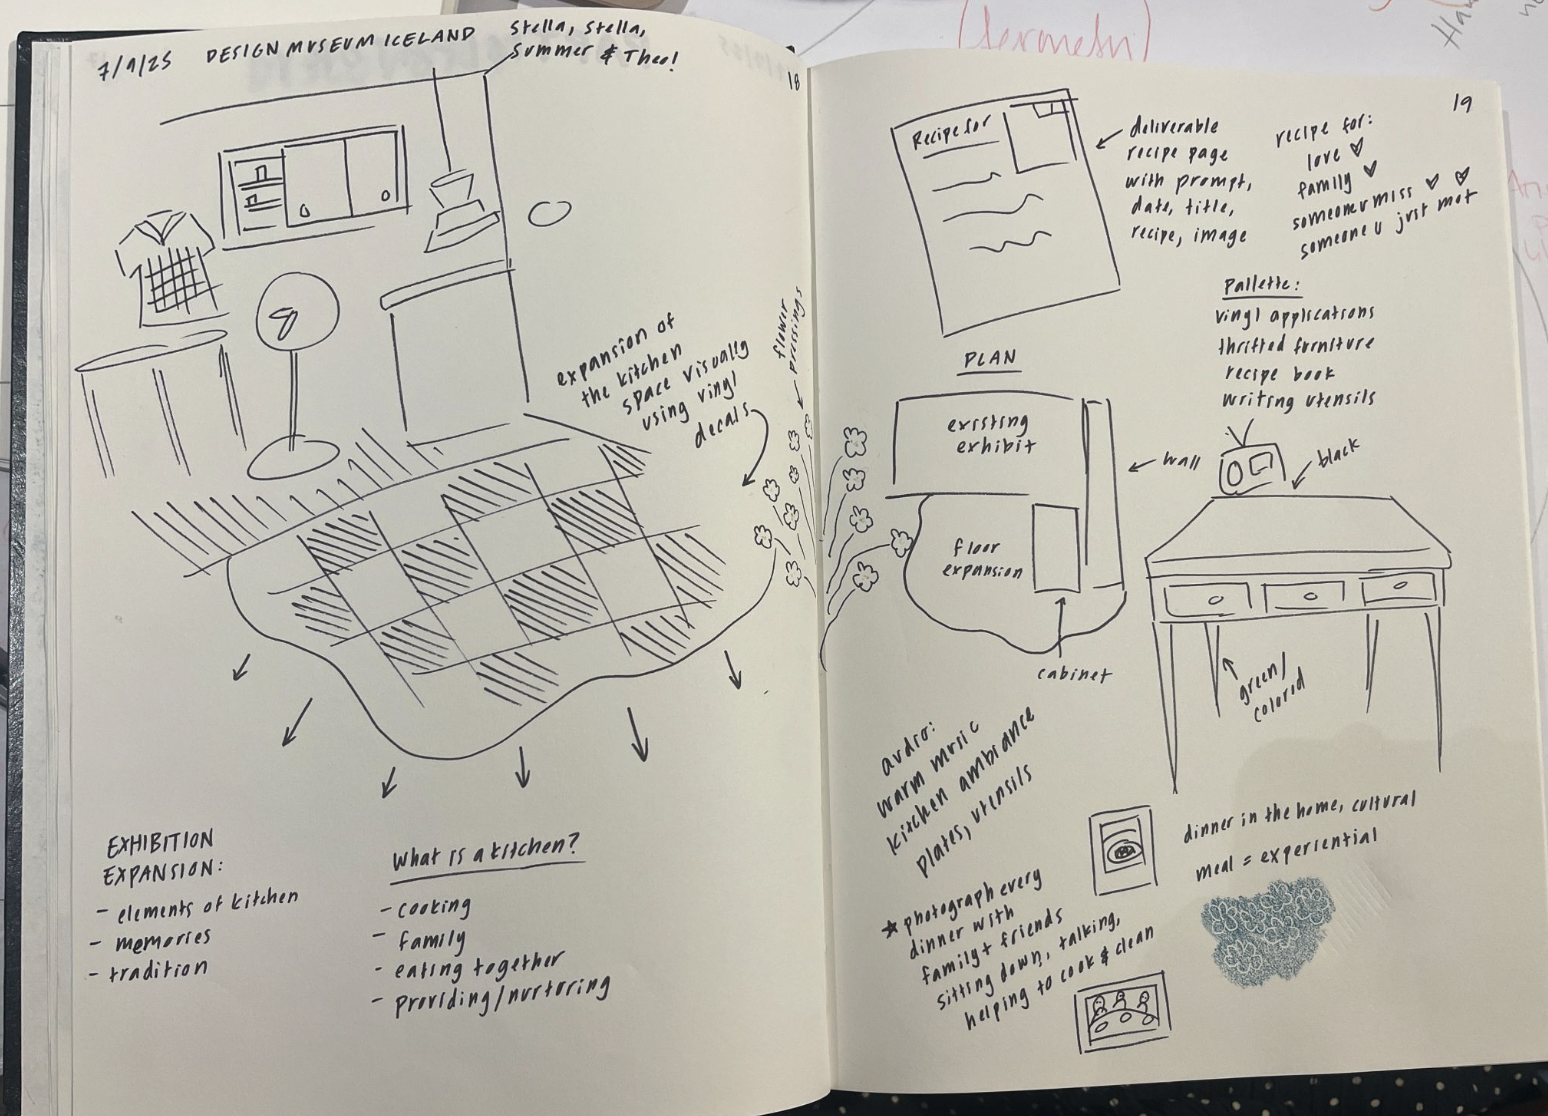 7/9/25 DESIGN MUSEUM ICELAND
Stella, Stella,
Summer & Theo!
18
expansion of
the kitchen
space visually
using vinyl
decals
flower
pressings
EXHIBITION
EXPANSION:
- elements of kitchen
- memories
- tradition
What is a kitchen?
- cooking
- family
- eating together
- providing/nurturing
19
Recipe for
deliverable
recipe page
with prompt,
date, title,
recipe, image
recipe for:
love ♡
family ♡
someone u miss ♡ ♡
someone u just met
Pallette:
vinyl applications
thrifted furniture
recipe book
writing utensils
PLAN
existing
exhibit
wall
floor
expansion
cabinet
black
green/
colored
audio:
warm music
kitchen ambiance
plates, utensils
★ photograph every
dinner with
family + friends
sitting down, talking,
helping to cook & clean
dinner in the home, cultural
meal = experiential